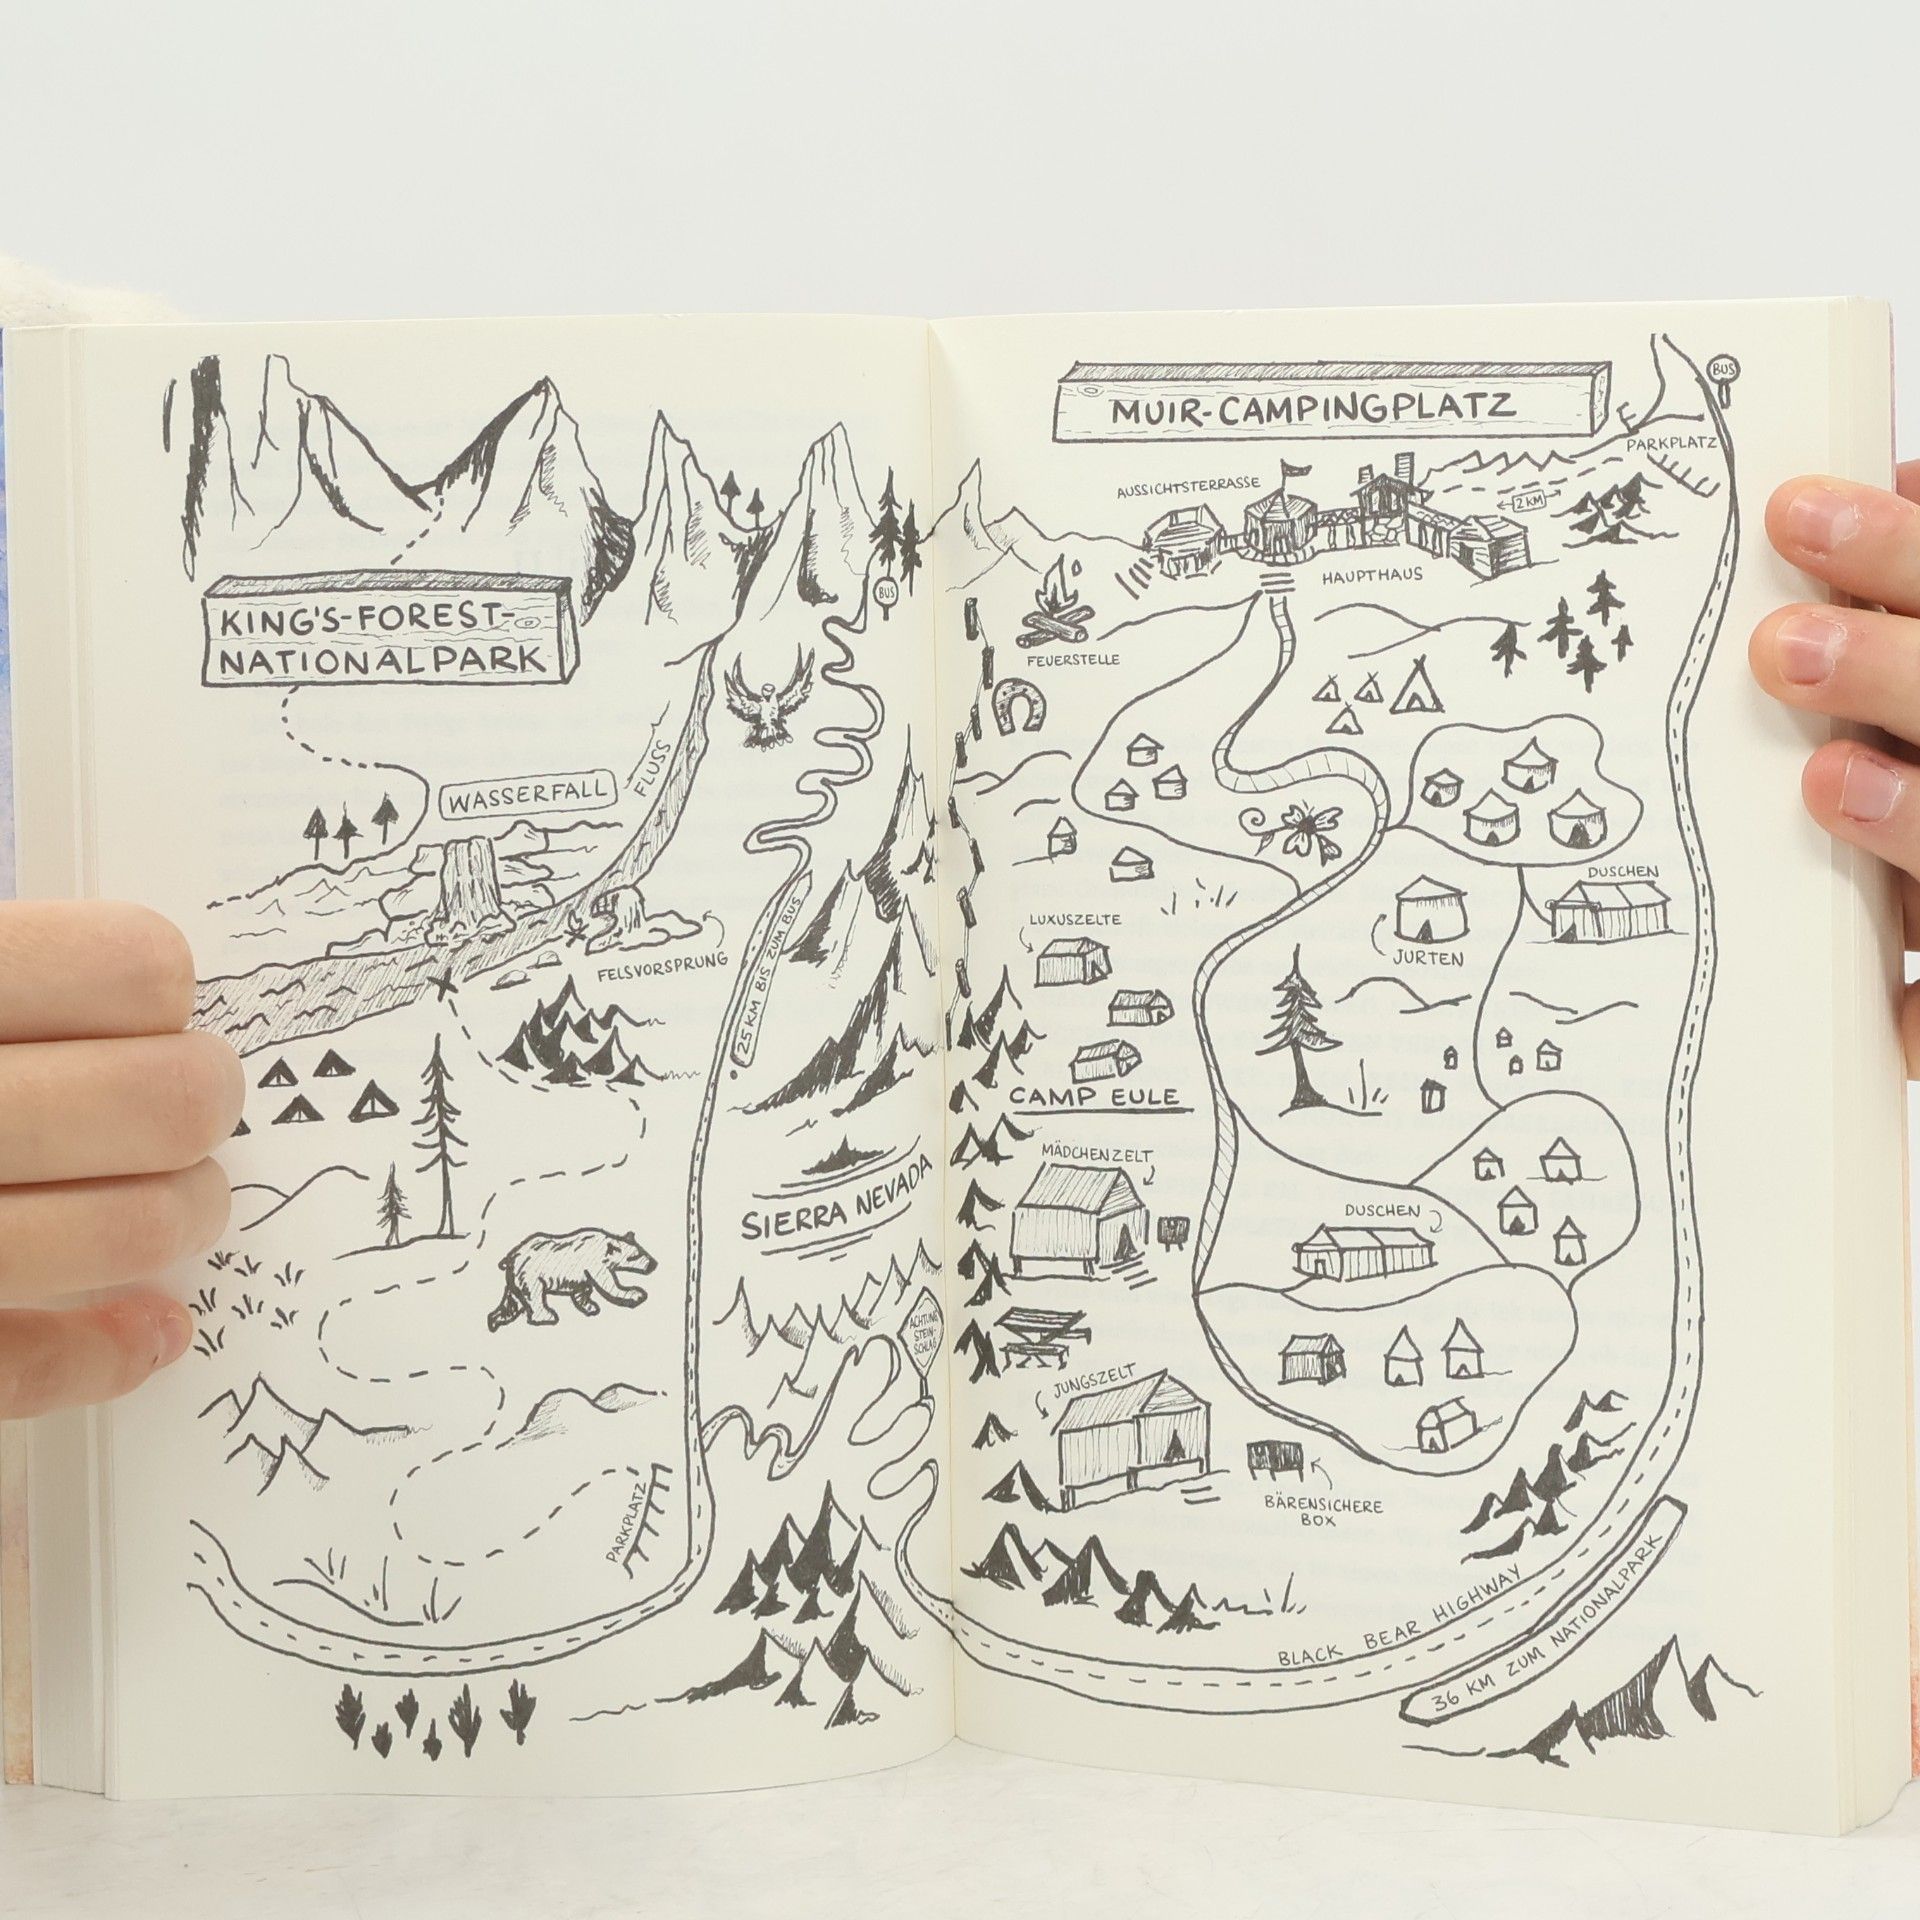 KING'S-FOREST-
NATIONALPARK
WASSERFALL
FLUSS
BUS
FELSVORSPRUNG
25 KM BIS ZUM BUS
SIERRA NEVADA
ACHTUNG
STEIN-
SCHLAG
PARKPLATZ
MUIR-CAMPINGPLATZ
BUS
PARKPLATZ
AUSSICHTSTERRASSE
2 KM
HAUPTHAUS
FEUERSTELLE
DUSCHEN
LUXUSZELTE
JURTEN
CAMP EULE
MÄDCHENZELT
DUSCHEN
JUNGSZELT
BÄRENSICHERE
BOX
BLACK BEAR HIGHWAY
36 KM ZUM NATIONALPARK